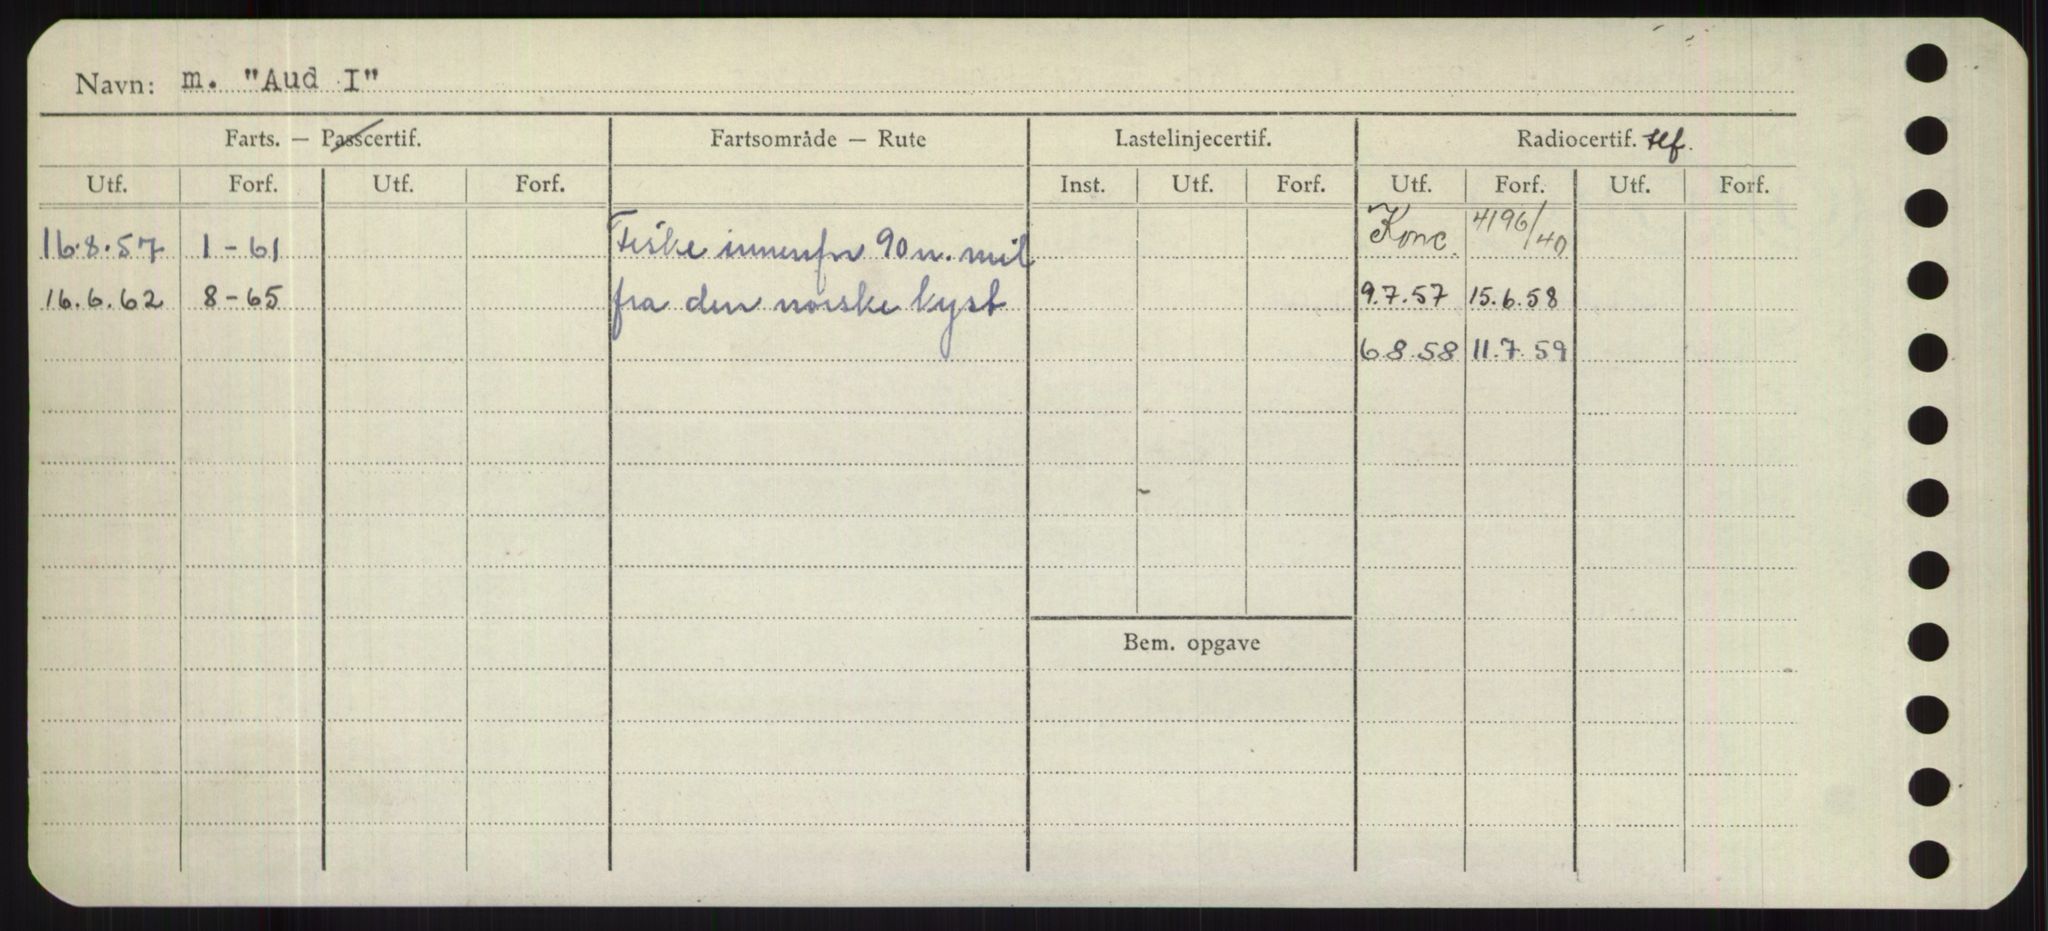 Navn: m. "Aud I"
Farts. — Passcertif. Fartsområde — Rute Lastelinjecertif. Radiocertif. tlf.
Utf. Forf. Utf. Forf. Inst. Utf. Forf. Utf. Forf. Utf. Forf.
16.8.57 1-61 Fiske innenfor 90 n. mil Konc. 4196/40
16.6.62 8-65 fra den norske kyst 9.7.57 15.6.58
6.8.58 11.7.59
Bem. opgave